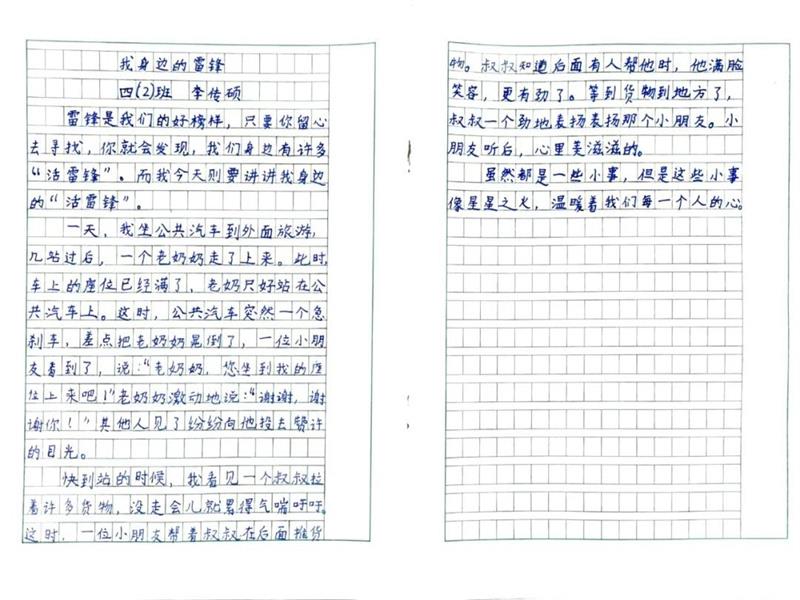 我身边的雷锋
四(2)班 李传硕
雷锋是我们的好榜样，只要你留心
去寻找，你就会发现，我们身边有许多
“活雷锋”。而我今天则要讲讲我身边
的“活雷锋”。
一天，我坐公共汽车到外面旅游，
几站过后，一个老奶奶走了上来。此时
车上的座位已经满了，老奶只好站在公
共汽车上。这时，公共汽车突然一个急
刹车，差点把老奶奶晃倒了，一位小朋
友看到了，说：“老奶奶，您坐到我的座
位上来吧！”老奶奶激动地说：“谢谢，谢
谢你！”其他人见了纷纷向他投去赞许
的目光。
快到站的时候，我看见一个叔叔拉
着许多货物，没走会儿就累得气喘吁吁。
这时，一位小朋友帮着叔叔在后面推货
物。叔叔知道后面有人帮他时，他满脸
笑容，更有劲了。等到货物到地方了，
叔叔一个劲地表扬表扬那个小朋友。小
朋友听后，心里美滋滋的。
虽然都是一些小事，但是这些小事
像星星之火，温暖着我们每一个人的心。